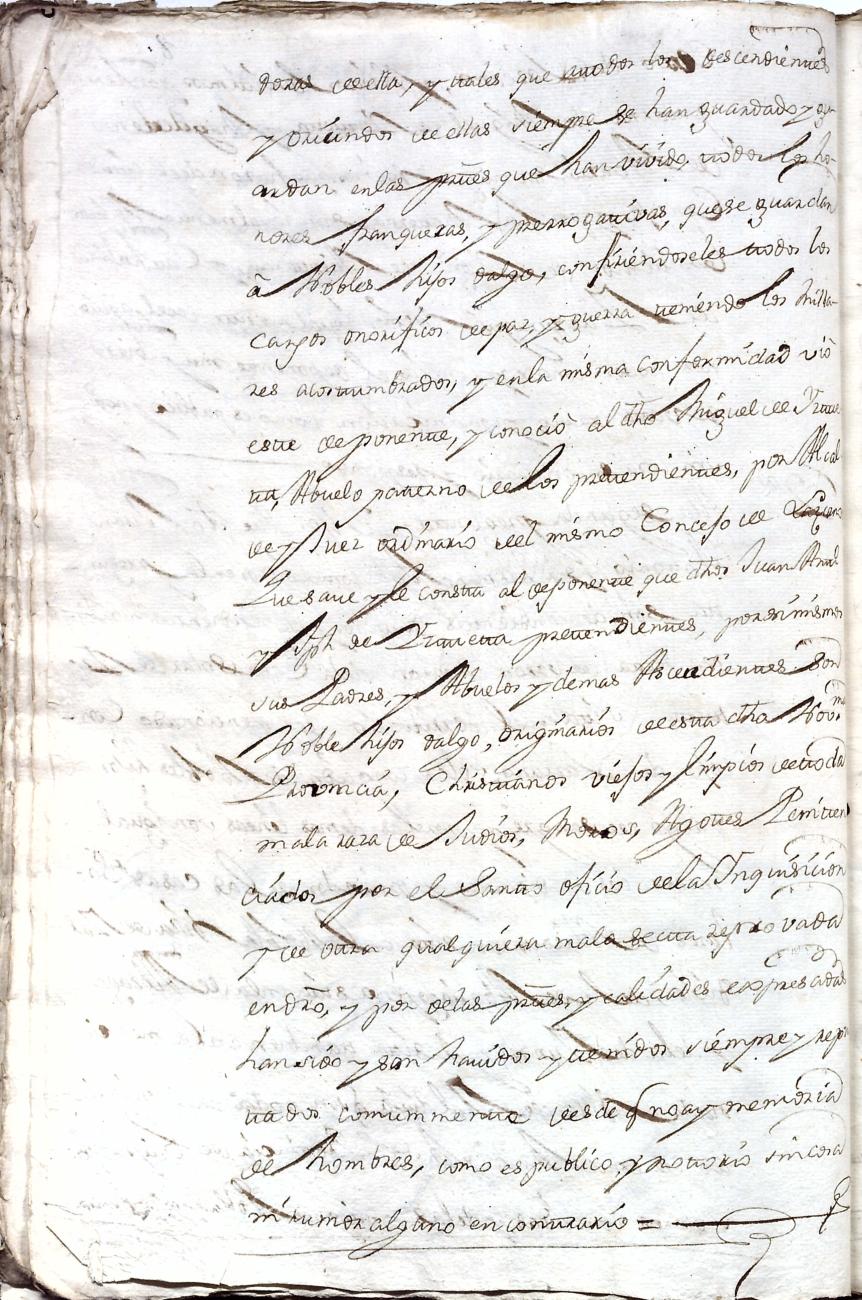 doras de ella, y tales que todos los descendientes
y oriundos de ellas siempre se han guardado y gu-
ardan en las prtes que han vivido, todos los ho-
nores, franquezas, y prerrogativas, que se guardan
â Nobles hijos dalgo, confiriendoseles todos los
cargos onorificos de paz, y guerra teniendo los milla-
res acostumbrados, y en la misma conformidad viò
este deponente, y conociò al dho Miguel de
Abuelo paterno de los pretendientes, por Alcal-
de y Juez ordinario del mismo Concejo de
Que save y le consta al deponente que dhos Juan
y Jph de pretendientes, por si mismos
sus Padres, y Abuelos y demas Ascendientes son
Noble hijos dalgo, originarios de esta dha
Provincia, Christianos viejos y limpios de toda
mala raza de Judios, Moros, Agotes Peniten
ciados por el Santo oficio de la Inquisicion
y de otra qualquiera mala secta reprovada
en dro, y por de las prtes, y calidades expresadas
han sido y son havidos y tenidos siempre y repu
tados comunmente desde q no ay memoria
de hombres, como es publico, y nottorio sin cosa
ni rumor alguno en contrario =